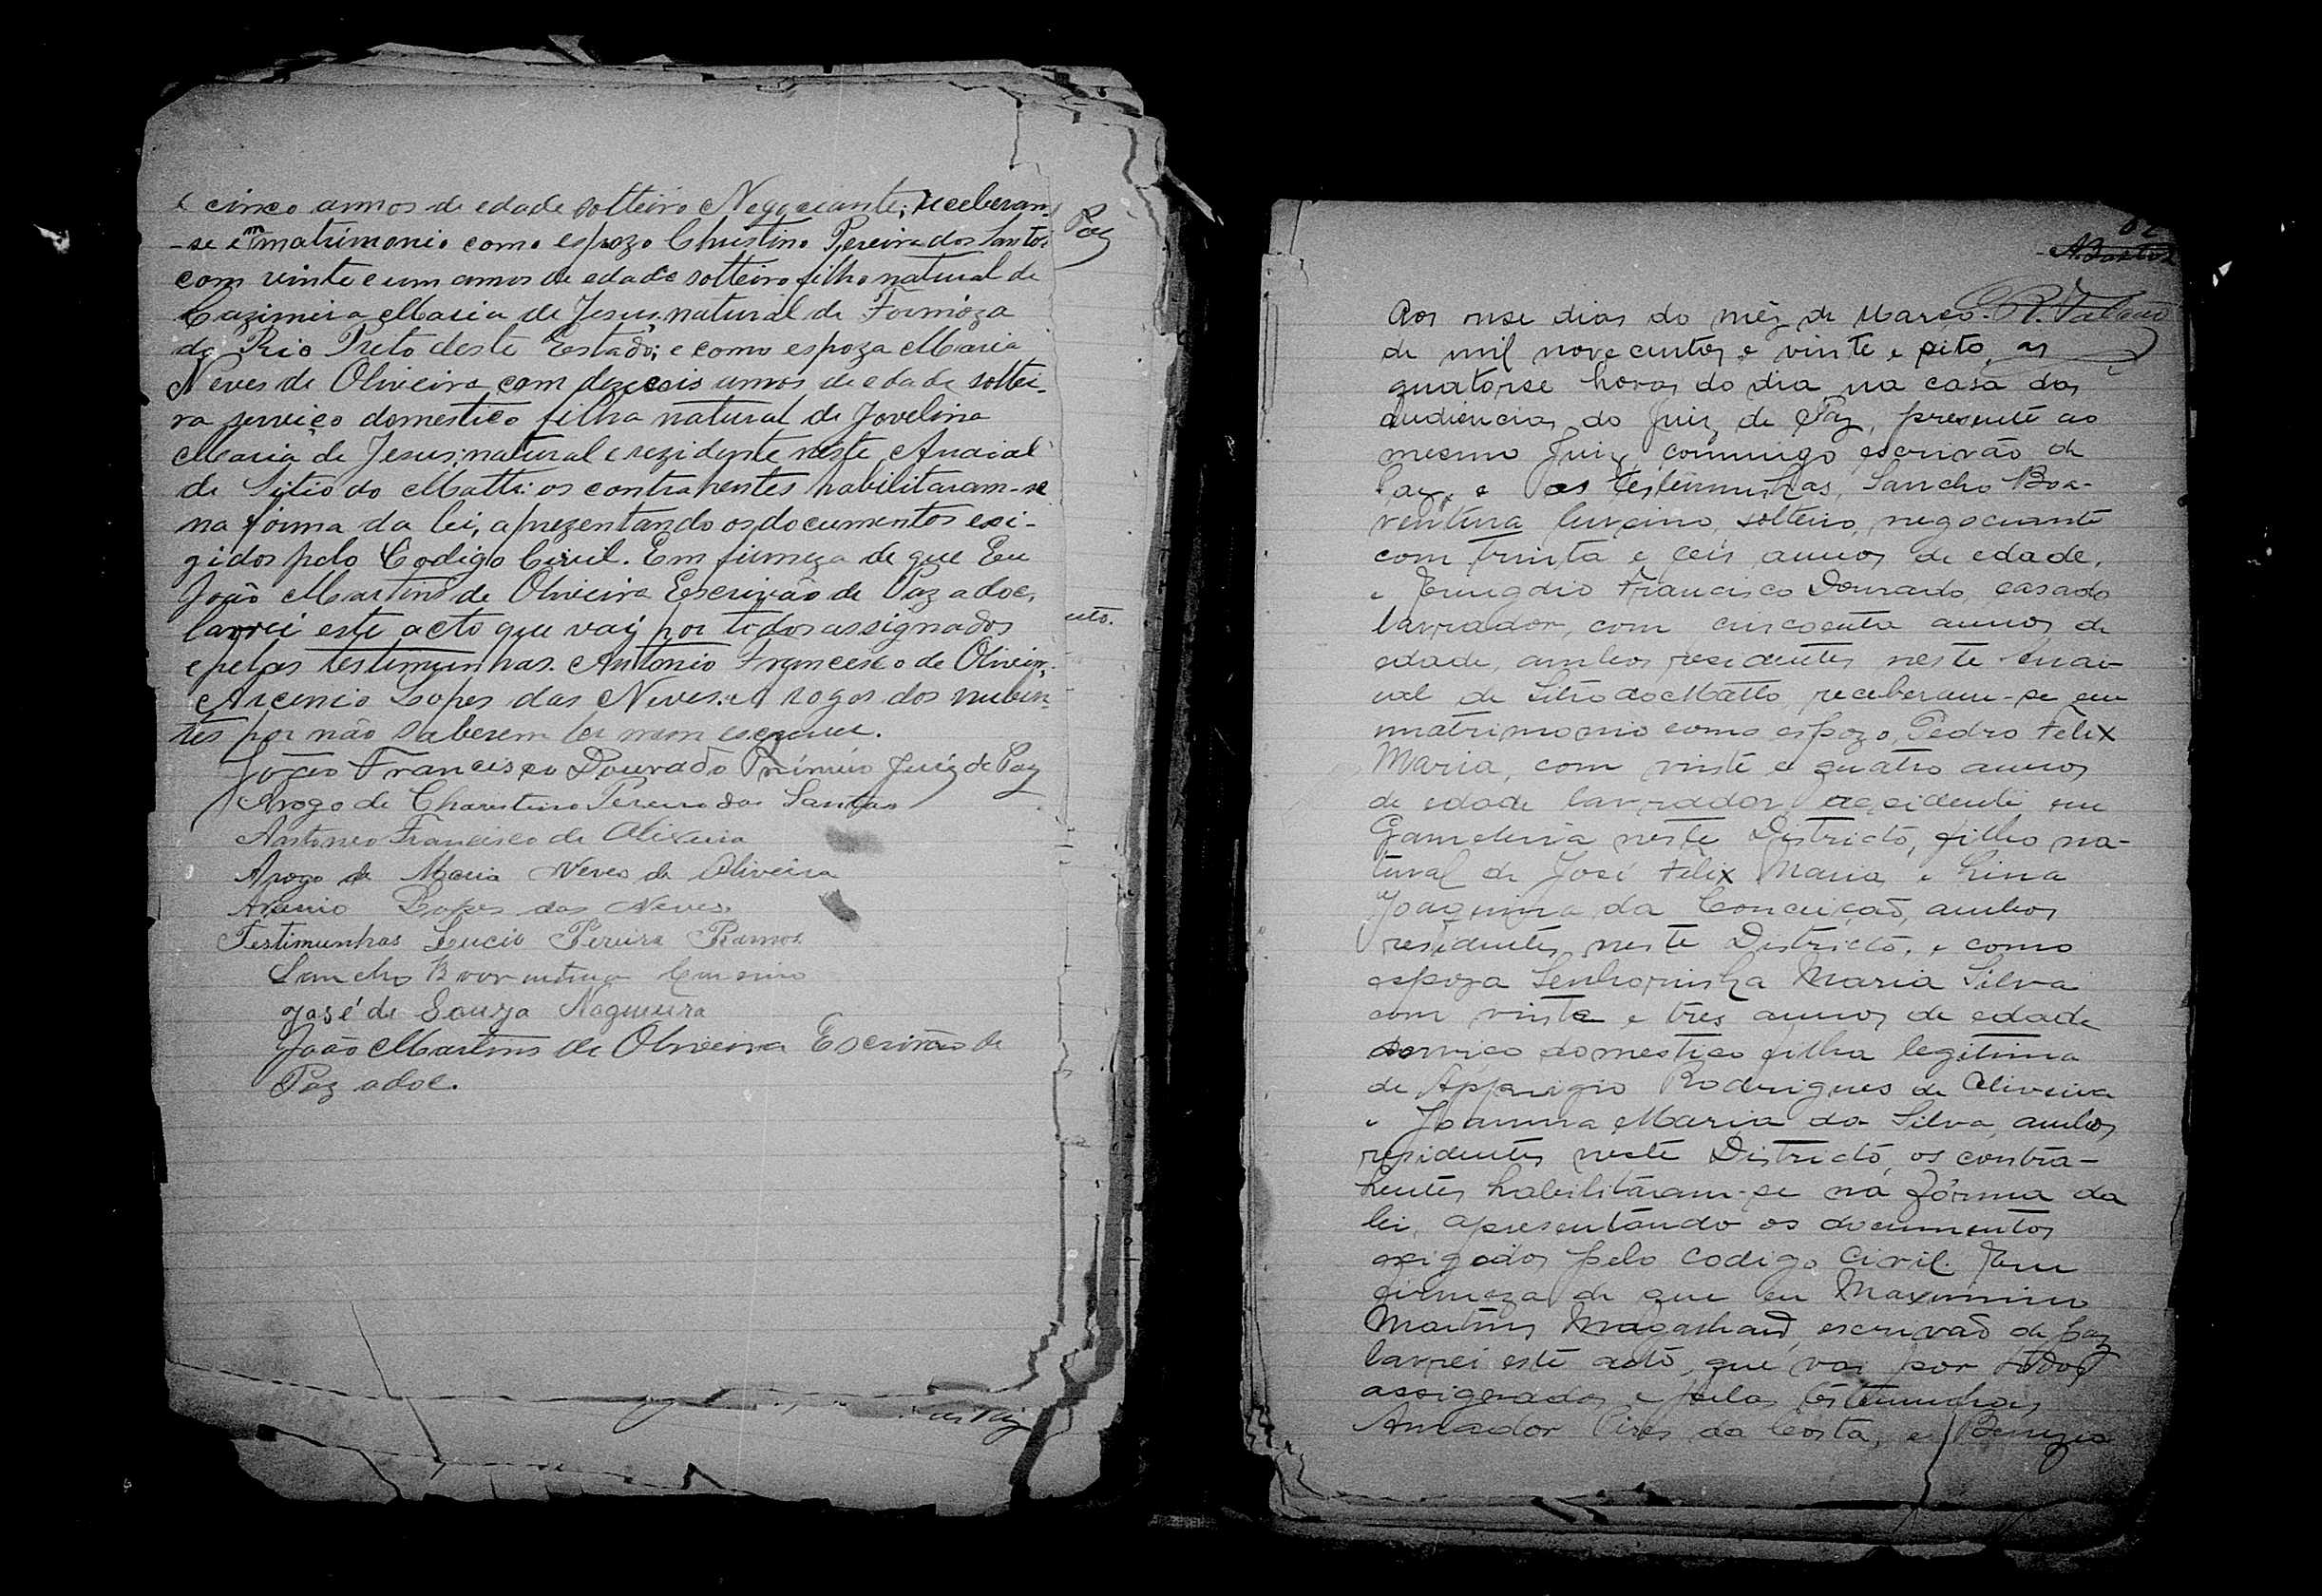 e cinco annos de edade solteiro Negociante; receberam-
-se em matrimonio como espozo Christino Pereira dos Santos
com vinte e um annos de edade solteiro filho natural de
Cazimira Maria de Jesus, natural de Formóza
do Rio Preto deste Estado; e como espoza Maria
Neves de Oliveira com dezeseis annos de edade soltei-
ra serviço domestico filha natural de Jovelina
Maria de Jesus; natural e rezidente neste Arraial
de Sitio do Matto: os contrahentes habilitaram-se
na fórma da lei, aprezentando os documentos exi-
gidos pelo Codigo Civil. Em firmeza de que Eu
João Martins de Oliveira Escrivão de Paz adoc,
lavrei este acto que vai por todos assignados
e pelas testimunhas. Antonio Francisco de Oliveira,
Arcenio Lopes das Neves. a rogos dos nuben-
tes por não saberem ler nem escrever.
João Francisco Dourado Primeiro Juiz de Paz
Arogo de Charistino Pereira dos Santos
Antonio Francisco de Oliveira
Arogo de Maria Neves de Oliveira
Arsenio Lopes das Neves.
Testimunhas Lucio Pereira Ramos
Sancho Boaventura
José de Souza Nogueira
João Martins de Oliveira Escrivão de
Paz adoc.
Paz
Aos onse dias do mêz de Março
de mil novecentos e vinte e oito, as
quatorse horas do dia na casa das
audiencias do Juiz de Paz, presente ao
mesmo Juiz, commigo escrivão de
Paz, e as testemunhas, Sancho Boa-
ventura solteiro, negociante
com trinta e seis annos de edade,
e Emigdio Francisco Dourado, casado
lavrador, com cincoenta annos de
edade, ambos residentes neste Arrai-
al de Sitio do Matto, receberam-se em
matrimonio como espozo, Pedro Felix
Maria, com vinte e quatro annos
de edade lavrador, residente em
Gamelleira neste Districto, filho na-
tural de José Felix Maria e Lina
Joaquina da Conceição, ambos
residentes neste Districto, e como
espoza Senhorinha Maria Silva
com vinte e tres annos de edade
serviço domestico filha legitima
de Apprigio Rodrigues de Oliveira
e Joanna Maria da Silva, ambos
residentes neste Districto, os contra-
hentes habilitaram-se na fórma da
lei, apresentando os documentos
exigidos pelo Codigo Civil. Em
firmeza de que eu Maximino
Martins Magalhães, escrivão de paz
lavrei este acto, que vai por todos
assignados e pelas testemunhas
Amador Pires da Costa, e